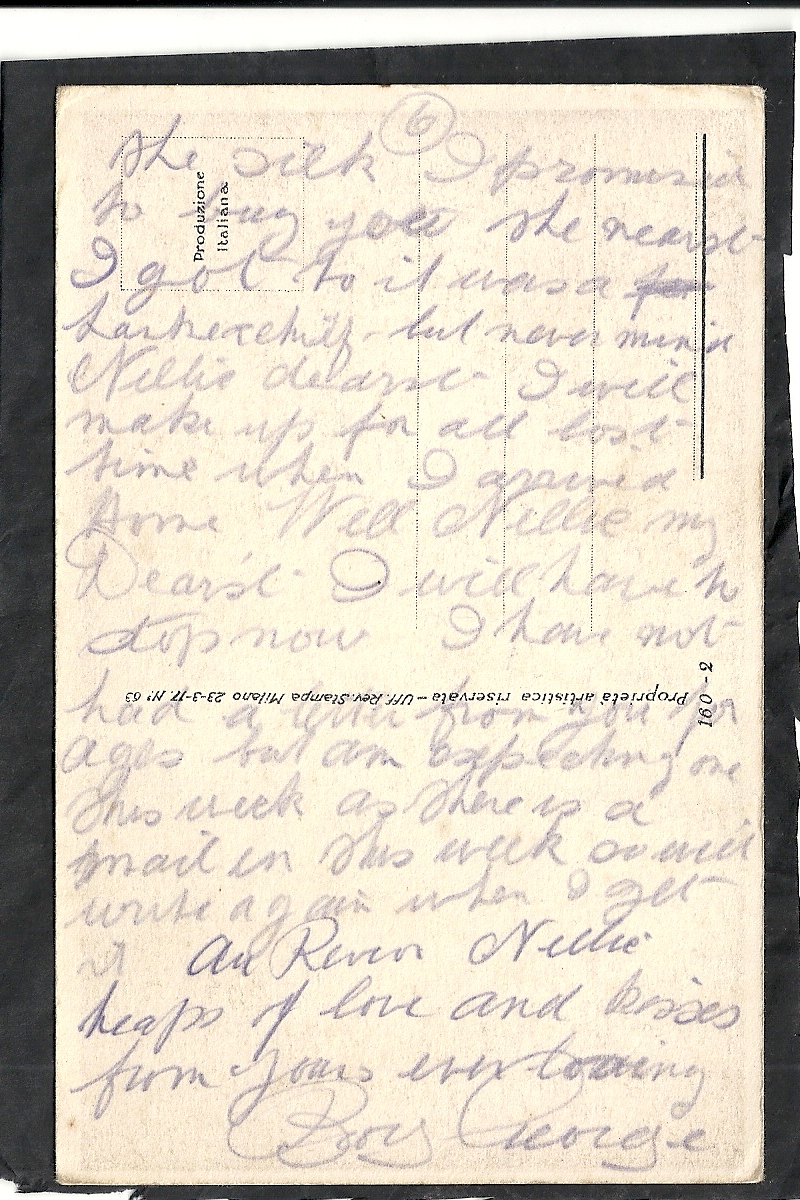 6
the silk I promised
to buy you the nearst
I got to it was a
hankerchilf but never mind
Nellie dearst I will
make up for all lost
time when I arrived
Home Well Nellie my
Dearst I will have to
stop now I have not
had a letter from you for
ages but am expecting one
this week as there is a
mail in this week so will
write again when I get
it Au Revoir Nellie
heaps of love and kisses
from yours ever loving
Boy George
Produzione
Italiana
Proprietà artistica riservata – Uff. Rev. Stampa Milano 23-3-17. N.° 63
160 - 2